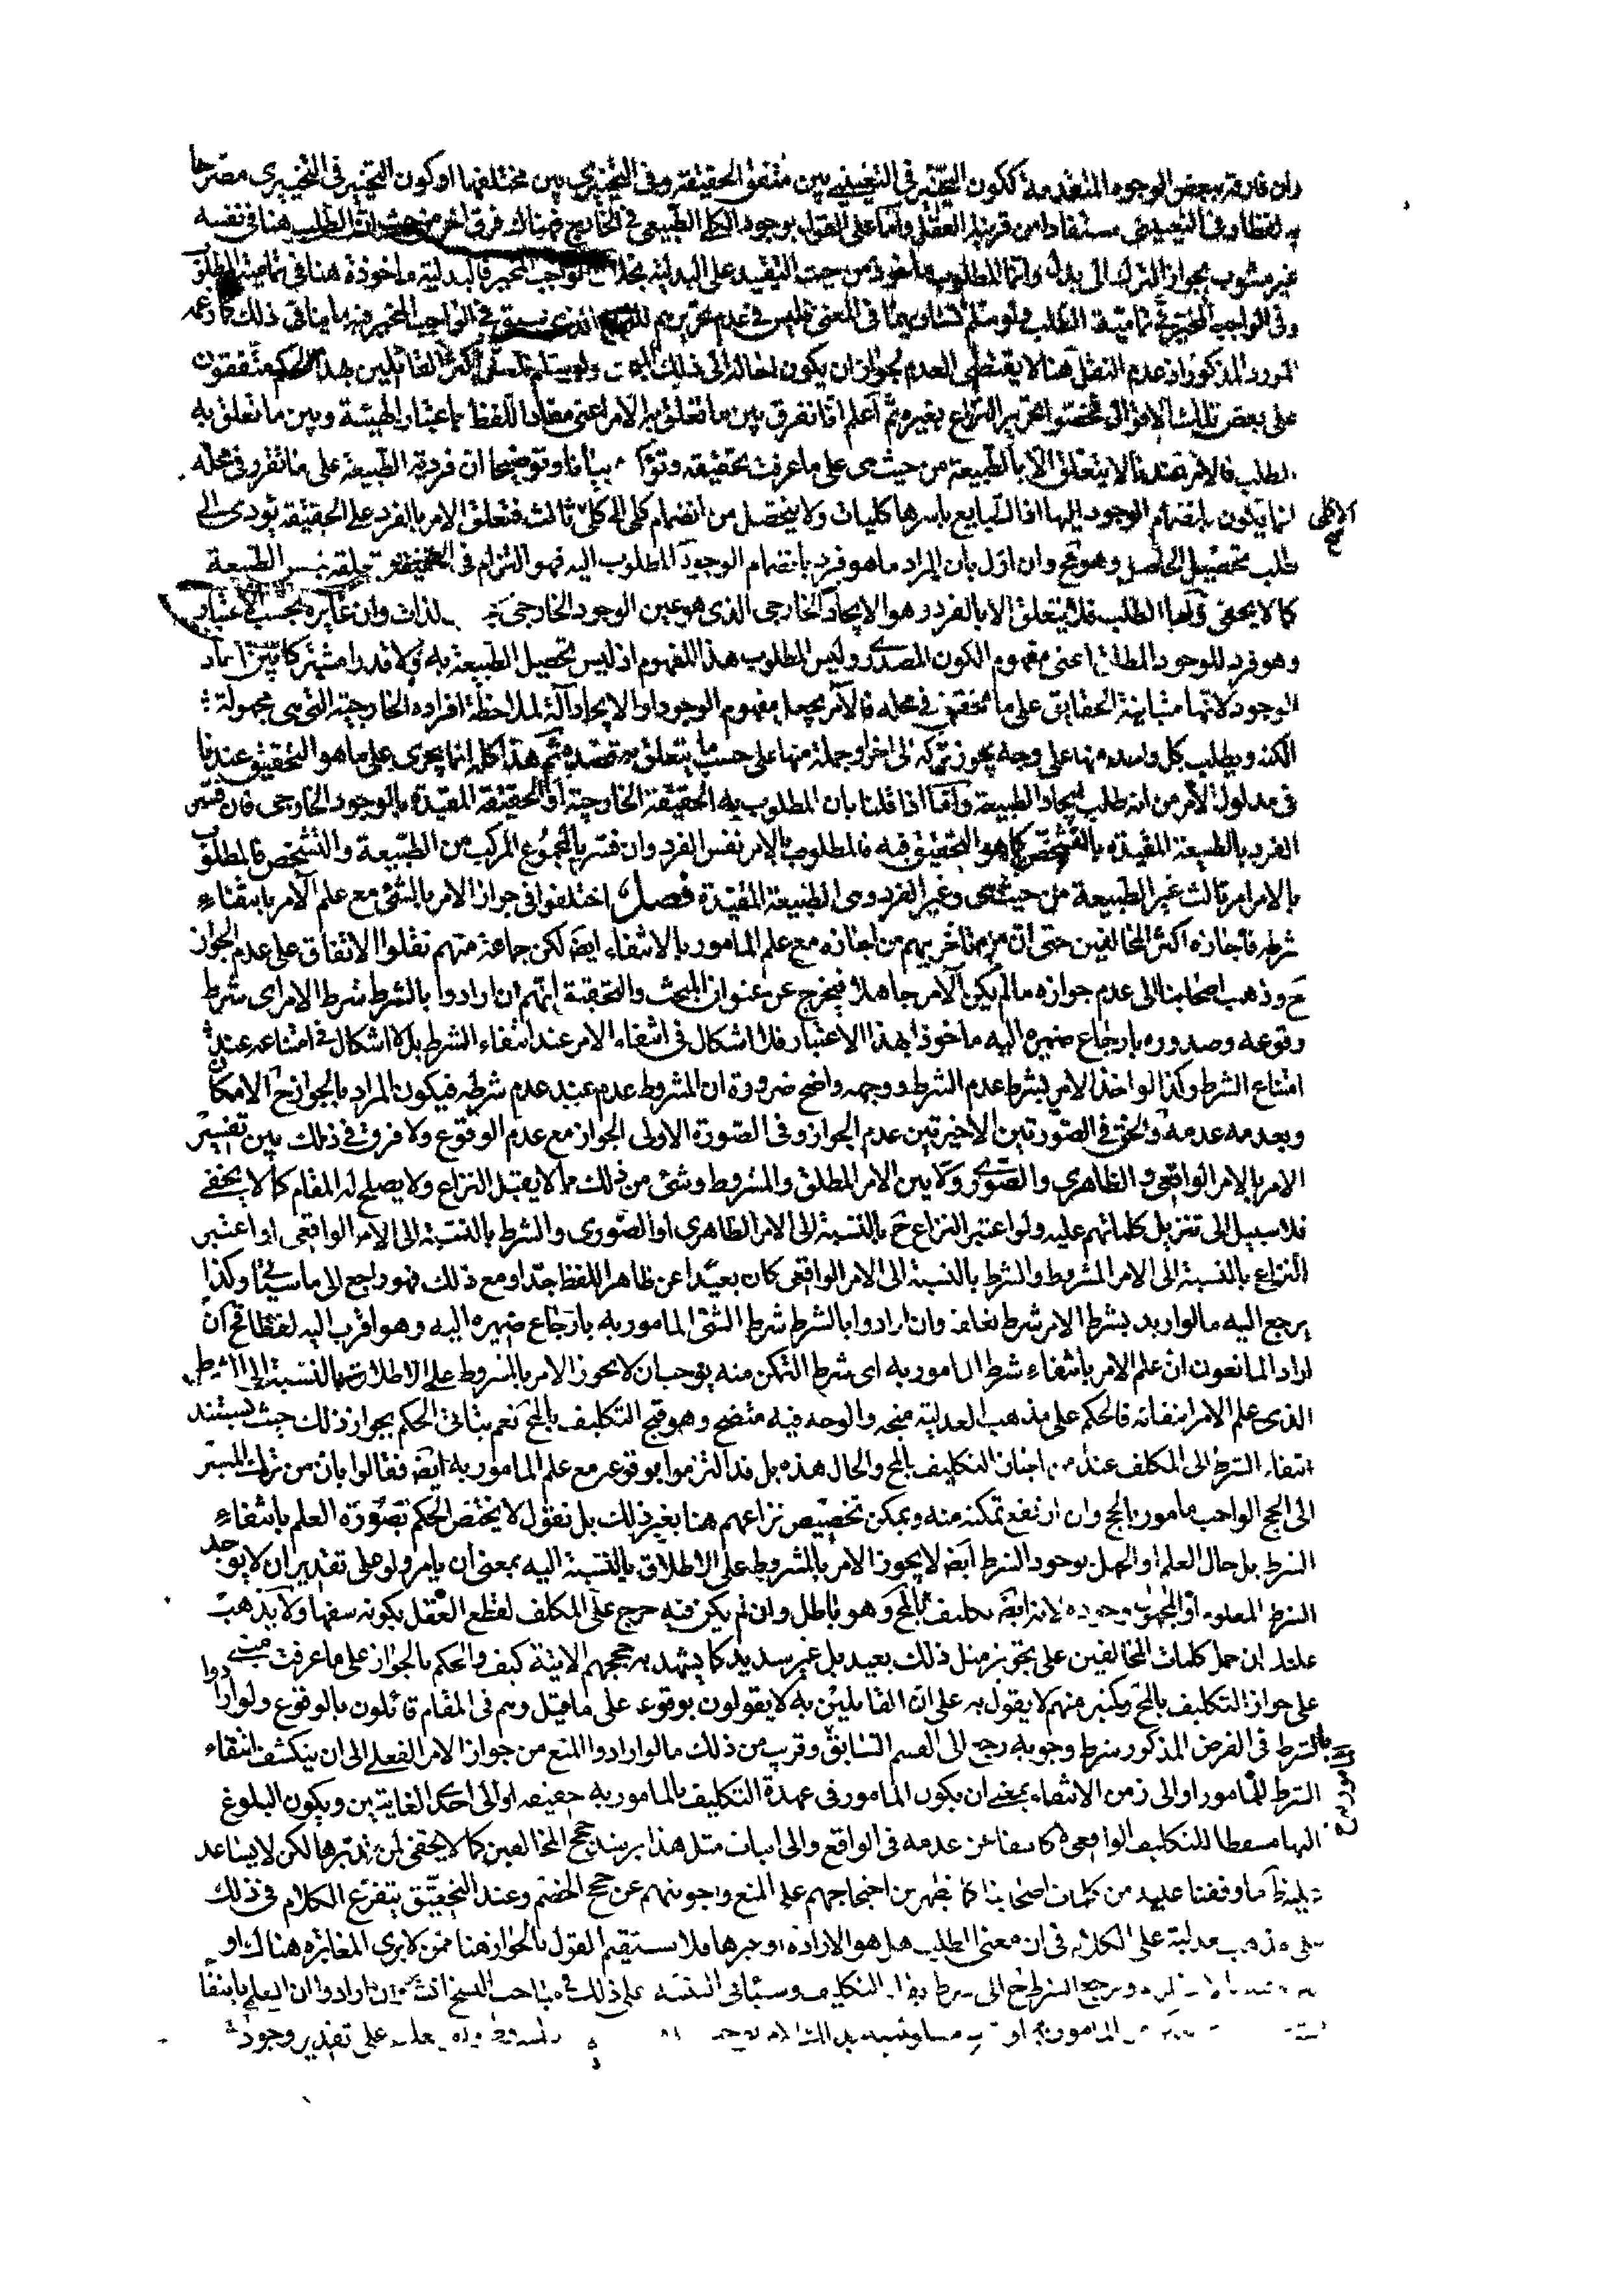 وان فارقه ببعض الوجوه المتقدمة ككون التخيير في التعييني بين متفق الحقيقة وفي التخييري بين مختلفها او كون التخيير في التخييري مصرحا
به لفظا وفي التعييني مستفادا من قرينة العقل واما على القول بوجود الكلي الطبيعي في الخارج فهناك فرق اخر من حيث ان الطلب هنا في نفسه
غير مشوب بجواز الترك الى بدل وانما المطلوب ماخوذ من حيث التقييد على البدلية بخلاف الواجب المخير فالبدلية ماخوذة هنا في تمامية المطلوب
وفي الواجب المخير في تمامية الطلب ولو سلم تساويهما في المعنى فليس في عدم تحريرهم للنزاع الذي سبق في الواجب المخير منه ما ينافي ذلك كما زعمه
المورد المذكور اذ عدم النقل هنا لا يقتضي العدم لجواز ان يكون احالة الى ذلك المبحث ولو سلم فلعل اكثر القائلين بهذا الحكم متفقون
على بعض تلك الاقوال فخصوا تحرير النزاع بغيره ثم اعلم انا نفرق بين ما تعلق به الامر اعني مفاد اللفظ باعتبار الهيئة وبين ما تعلق به
الطلب فالامر عندنا لا يتعلق الا بالطبيعة من حيث هي على ما عرفت تحقيقه ونزيدك بيانا وتوضيحا ان فردية الطبيعة على ما تقرر في محله
انما يكون بانضمام الوجود اليها اذ الطبايع باسرها كليات ولا يتحصل من انضمام كلي الى كلي ثالث فتعلق الامر بالفرد على الحقيقة يؤدي الى
الا كلي صح
طلب تحصيل الحاصل وهو مح وان اول بان المراد ما هو فرد بانضمام الوجود المطلوب اليه فهو التزام في الحقيقة بتعلقه بنفس الطبيعة
كما لا يخفى واما الطلب فلا يتعلق الا بالفرد وهو الايجاد الخارجي الذي هو عين الوجود الخارجي بالذات وان غايره بحسب الاعتبار
وهو فرد للوجود المطلق اعني مفهوم الكون المصدري وليس المطلوب هذا المفهوم اذ ليس تحصيل الطبيعة به ولا قدرا مشتركا بين احاد
الوجود لانها متباينة الحقايق على ما تحقق في محله فالآمر يجعل مفهوم الوجود او الايجاد آلة لملاحظة افراده الخارجية التي هي مجهولة
الكنه ويطلب كل واحد منها على وجه يجوز تركه الى اخر او جملة منها على حسب ما يتعلق به قصده ثم هذا كله انما يجري على ما هو التحقيق عندنا
في مدلول الامر من انه طلب ايجاد الطبيعة واما اذا قلنا بان المطلوب به الحقيقة الخارجية او الحقيقة المقيدة بالوجود الخارجي فان فسر
الفرد بالطبيعة المقيدة بالتشخص كما هو التحقيق فيه فالمطلوب بالامر نفس الفرد وان فسر بالمجموع المركب من الطبيعة والتشخص فالمطلوب
بالامر امر ثالث غير الطبيعة من حيث هي وغير الفرد وهي الطبيعة المقيدة فصل اختلفوا في جواز الامر بالشئ مع علم الآمر بانتفاء
شرطه فاجازه اكثر المخالفين حتى ان من متاخريهم من اجازه مع علم المامور بالانتفاء ايضا لكن جماعة منهم نقلوا الاتفاق على عدم الجواز
ح وذهب اصحابنا الى عدم جوازه ما لم يكن الآمر جاهلا فيخرج عن عنوان المبحث والتحقيق انهم ان ارادوا بالشرط شرط الامر اى شرط
وقوعه وصدوره بارجاع ضميره اليه ماخوذا بهذا الاعتبار فلا اشكال في انتفاء الامر عند انتفاء الشرط بل لا اشكال في امتناعه عند
امتناع الشرط وكذا لو اخذ الامر بشرط عدم الشرط ووجهه واضح ضرورة ان المشروط عدم عند عدم شرطه فيكون المراد بالجواز ح الامكان
وبعدمه عدمه والحق في الصورتين الاخيرتين عدم الجواز وفي الصورة الاولى الجواز مع عدم الوقوع ولا فرق في ذلك بين تفسير
الامر بالامر الواقعي والظاهري والصوري ولا بين الامر المطلق والمشروط وشئ من ذلك مما لا يقبل النزاع ولا يصلح له المقام كما لا يخفى
فلا سبيل الى تنزيل كلماتهم عليه ولو اعتبر النزاع ح بالنسبة الى الامر الظاهري او الصوري والشرط بالنسبة الى الامر الواقعي او اعتبر
النزاع بالنسبة الى الامر المشروط والشرط بالنسبة الى الامر الواقعي كان بعيدا عن ظاهر اللفظ جدا ومع ذلك فهو راجع الى ما سيأتي وكذا
يرجع اليه ما لو اريد بشرط الامر شرط تعلقه وان ارادوا بالشرط شرط الشئ المامور به بارجاع ضميره اليه وهو اقرب اليه لفظا فح ان
اراد المانعون ان علم الامر بانتفاء شرط المامور به اى شرط التمكن منه يوجب ان لا يجوز الامر بالمشروط على الاطلاق بالنسبة الى الشرط
الذى علم الامر انتفائه فالحكم على مذهب العدلية متجه والوجه فيه متضح وهو قبح التكليف بالمح نعم يتاتى الحكم بجواز ذلك حيث يستند
انتفاء الشرط الى المكلف عند من اجاز التكليف بالمح والحال هذه بل قد التزموا بوقوعه مع علم المامور به ايضا فقالوا بان من ترك المسير
الى الحج الواجب مامور بالحج وان ارتفع تمكنه منه ويمكن تخصيص نزاعهم هنا بغير ذلك بل نقول لا يختص الحكم بصورة العلم بانتفاء
الشرط بل حال العلم او الجهل بوجود الشرط ايضا لا يجوز الامر بالمشروط على الاطلاق بالنسبة اليه بمعنى ان يامر ولو على تقدير ان لا يوجد
الشرط المعلوم او المجهول وجوده لانه ايضا تكليف بالمح وهو باطل وان لم يكن فيه حرج على المكلف لقطع العقل بكونه سفها ولا يذهب
عليك ان حمل كلمات المخالفين على تجويز مثل ذلك بعيد بل غير سديد كما يشهد به حججهم الاتية كيف والحكم بالجواز على ما عرفت مبني
على جواز التكليف بالمح وكثير منهم لا يقول به على ان القائلين به لا يقولون بوقوعه على ما قيل وهم في المقام قائلون بالوقوع ولو ارادوا
بالشرط في الفرض المذكور شرط وجوبه رجع الى القسم السابق وقريب من ذلك ما لو ارادوا المنع من جواز الامر الفعلي الى ان ينكشف انتفاء
الشرط للمامور او الى زمن الانتفاء بمعنى ان يكون المامور في عهدة التكليف بالمامور به حقيقة او الى احد الغايتين ويكون البلوغ
اليها مسقطا للتكليف الواقعي لا كاشفا عن عدمه في الواقع والى اثبات مثل هذا يرشد حجج المخالفين كما لا يخفى لمن تدبرها لكن لا يساعد
عليه ما وقفنا عليه من كلمات اصحابنا كما يظهر من احتجاجهم على المنع واجوبتهم عن حجج الخصم وعند التحقيق يتفرع الكلام في ذلك
على مذهب العدلية على الكلام في ان معنى الطلب هل هو الارادة او غيرها فلا يستقيم القول بالجواز هنا ممن لا يرى المغايرة هناك او
ويرجع الشرط ح الى شرط بقاء التكليف وسياتى التنبيه على ذلك في مباحث النسخ انشاء وان ارادوا ان العلم بانتفاء
المامور به على تقدير وجود